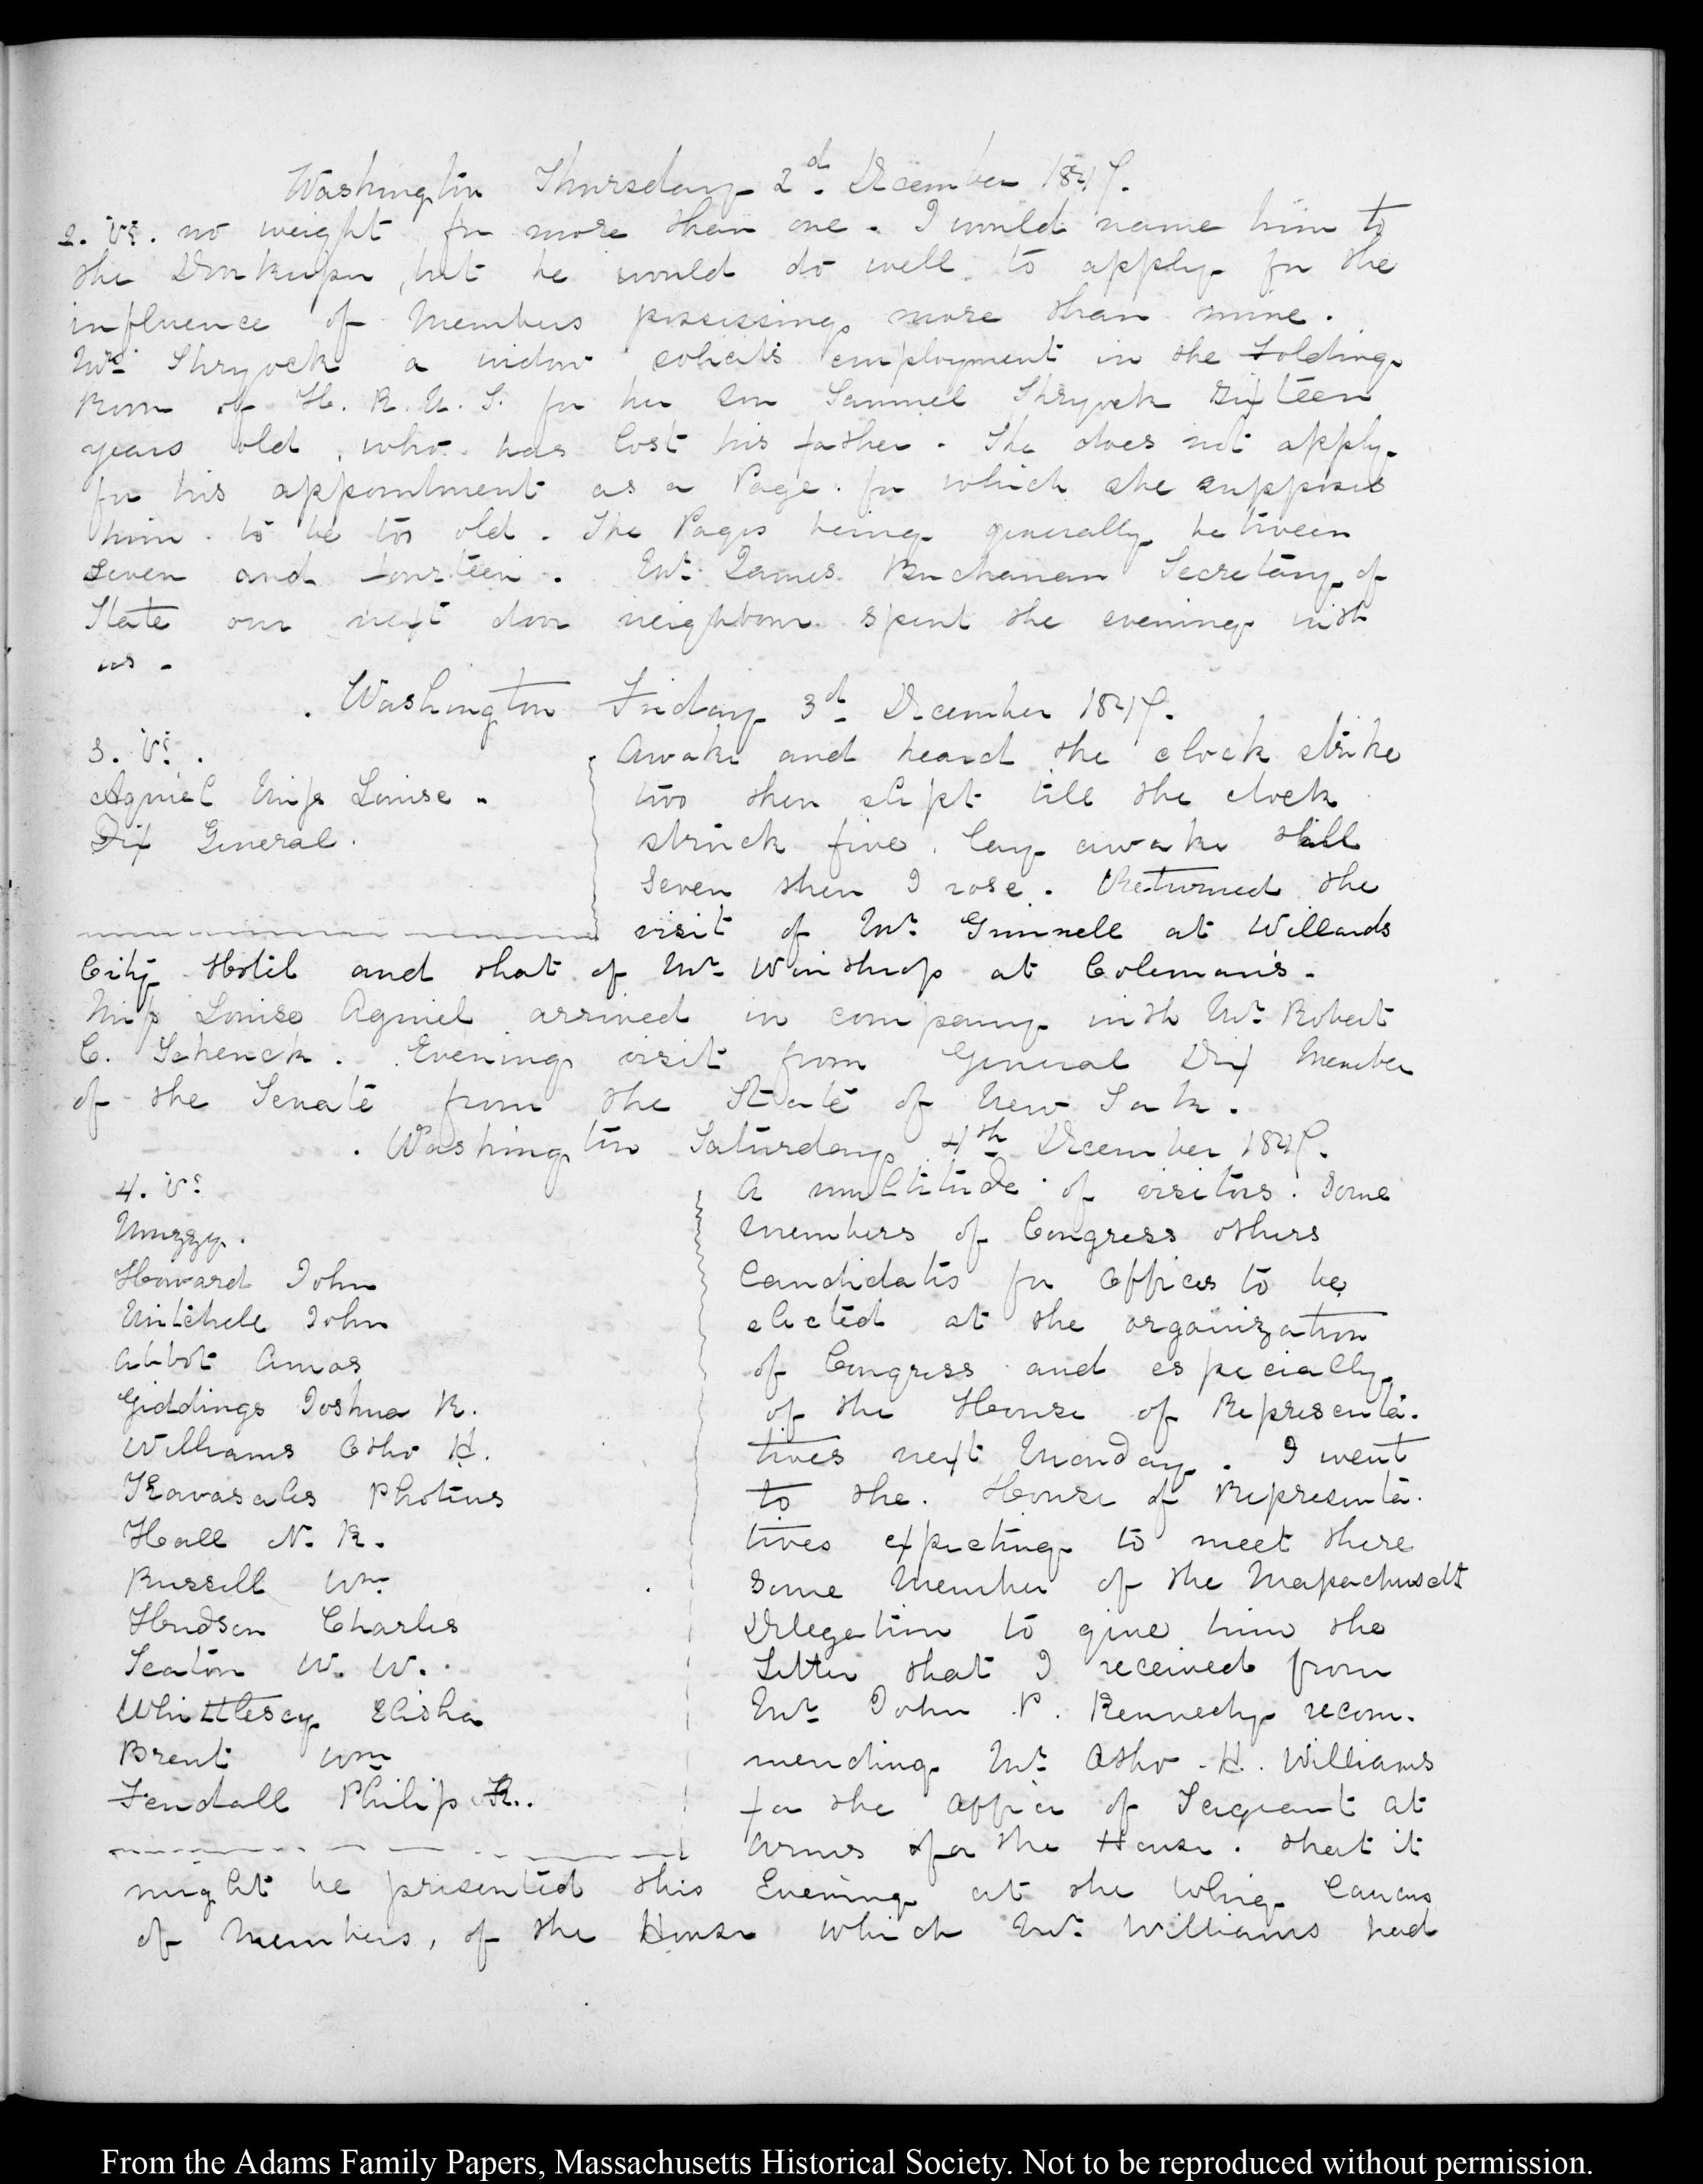 Washington Thursday 2d. December 1847.
2. V:. no weight for more than one. I would name him to
the Doorkeeper, but he would do well to apply for the
influence of Members possessing more than mine.
Mrs. Shryock a widow solicits employment in the Folding
Room of H. R. U. S. for her Son Samuel Shryock Sixteen
years old, who has lost his father. She does not apply
for his appointment as a Page. for which she supposes
him to be too old. The Pages being generally between
seven and fourteen. Mr. James Buchanan Secretary of
State our next door neighbour spent the evening with
us.
Washington Friday 3d. December 1847.
3. V:.
Agniel Miss Louise.
Dix General.
Awake and heard the clock strike
two then slept till the clock
struck five. lay awake till
seven then I rose. Returned the
visit of Mr. Grinnell at Willards
City Hotel and that of Mr. Winthrop at Coleman's.
Miss Louise Agniel arrived in company with Mr. Robert
C. Schenck. Evening visit from General Dix Member
of the Senate from the State of New York.
Washington Saturday 4th December 1847.
4. V:
Muzzy.
Howard John
Mitchell John
Abbot Amos
Giddings Joshua R.
Williams Otho H.
Kavasales Photius
Hall N. K.
Russell Wm
Hudson Charles
Seaton W. W.
Whittlesey Elisha
Brent Wm
Fendall Philip R.
A multitude of visitors. Some
members of Congress others
Candidates for Offices to be
elected at the organization
of Congress and especially
of the House of Representa-
tives next Monday. I went
to the House of Representa-
tives expecting to meet there
some Member of the Massachusetts
Delegation to give him the
Letter that I received from
Mr. John P. Kennedy recom-
mending Mr. Otho H. Williams
for the Office of Sergeant at
Arms of the House. that it
might be presented this Evening at the Whig Caucus
of Members, of the House which Mr. Williams had
From the Adams Family Papers, Massachusetts Historical Society. Not to be reproduced without permission.